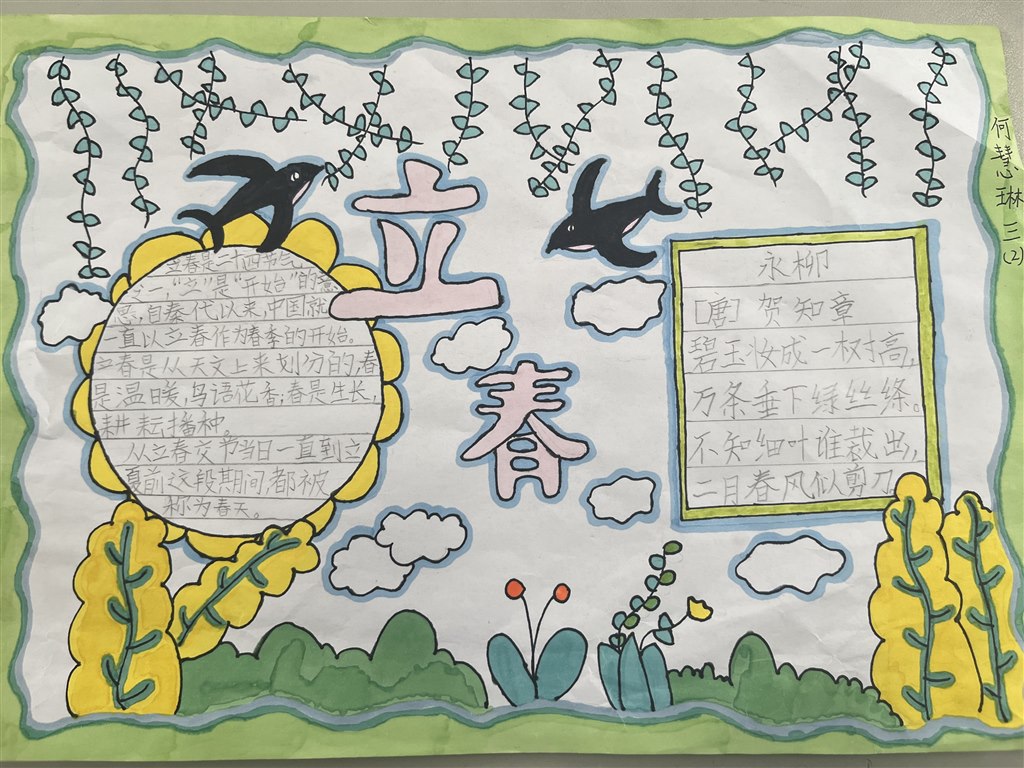 立春
立春是二十四节气
之一，“立”是“开始”的意
思，自秦代以来，中国就一
直以立春作为春季的开始。
立春是从天文上来划分的，春
是温暖，鸟语花香；春是生长，
耕耘播种。
从立春交节当日一直到立
夏前这段期间，都被
称为春天。
永柳
[唐] 贺知章
碧玉妆成一权扌高，
万条垂下绿丝绦。
不知细叶谁裁出，
二月春风似剪刀
何慧琳 三(2)